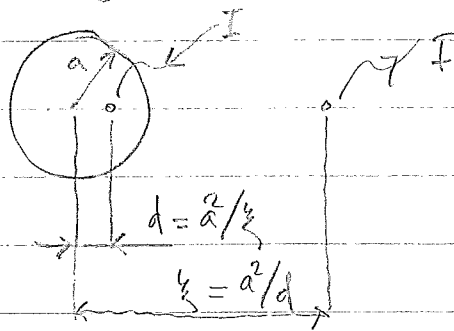 I
a
I
d = a²/ξ
ξ = a²/d